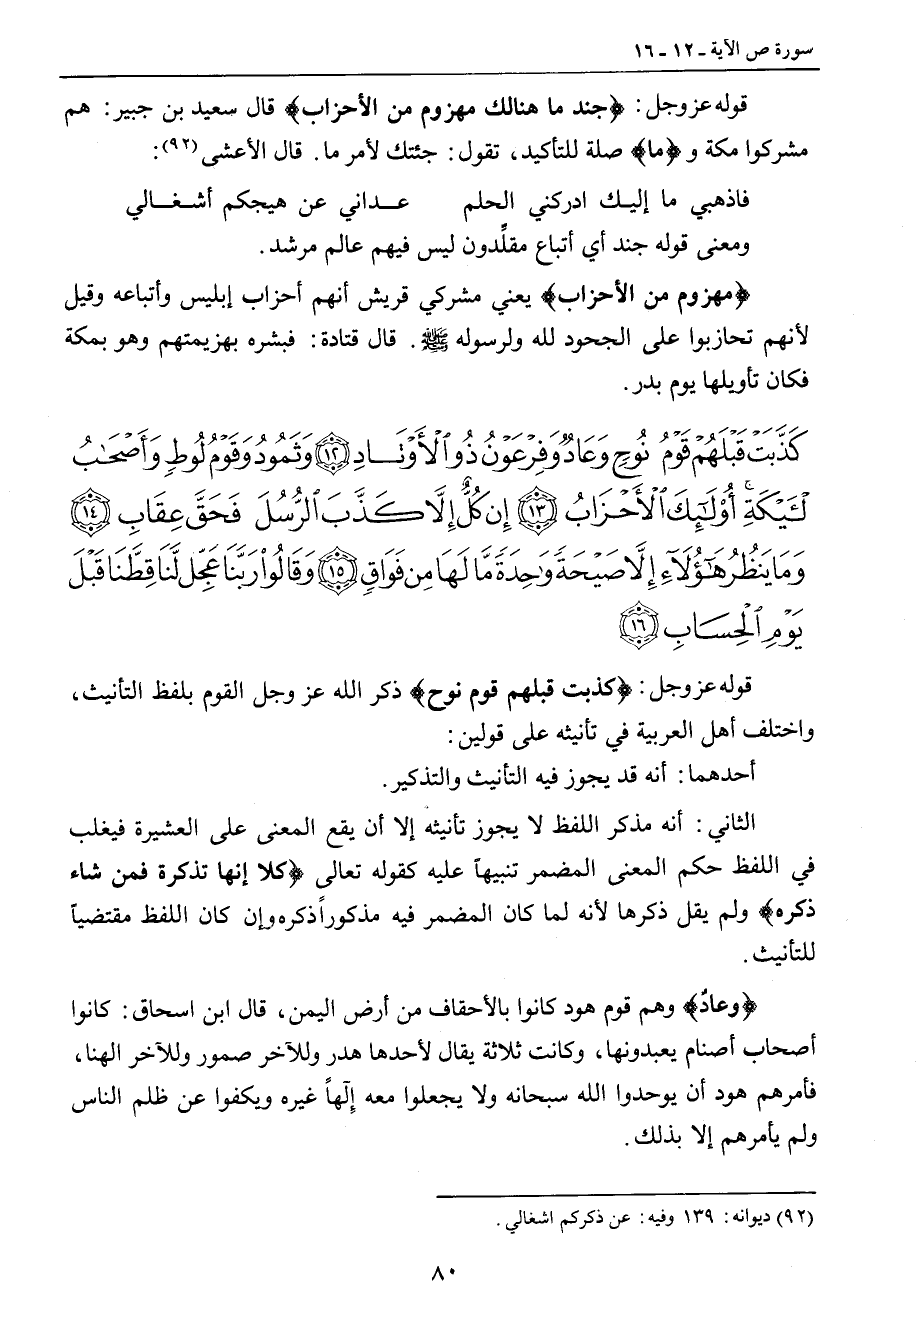 سورة ص الآية ـ ١٢ ـ ١٦
قوله عز وجل: ﴿جند ما هنالك مهزوم من الأحزاب﴾ قال سعيد بن جبير: هم
مشركوا مكة و ﴿ما﴾ صلة للتأكيد، تقول: جئتك لأمر ما. قال الأعشى(٩٢):
فاذهبي ما إليـك ادركني الحلم عـــداني عن هيجكم أشـغـــالي
ومعنى قوله جند أي أتباع مقلِّدون ليس فيهم عالم مرشد.
﴿مهزوم من الأحزاب﴾ يعني مشركي قريش أنهم أحزاب إبليس وأتباعه وقيل
لأنهم تحازبوا على الجحود لله ولرسوله ﷺ. قال قتادة: فبشره بهزيمتهم وهو بمكة
فكان تأويلها يوم بدر.
كَذَّبَتْ قَبْلَهُمْ قَوْمُ نُوحٍ وَعَادٌ وَفِرْعَوْنُ ذُو ٱلْأَوْتَادِ ١٢ وَثَمُودُ وَقَوْمُ لُوطٍ وَأَصْحَٰبُ
لْـَٔيْكَةِ ۚ أُو۟لَٰٓئِكَ ٱلْأَحْزَابُ ١٣ إِن كُلٌّ إِلَّا كَذَّبَ ٱلرُّسُلَ فَحَقَّ عِقَابِ ١٤
وَمَا يَنظُرُ هَٰٓؤُلَآءِ إِلَّا صَيْحَةً وَٰحِدَةً مَّا لَهَا مِن فَوَاقٍ ١٥ وَقَالُوا۟ رَبَّنَا عَجِّل لَّنَا قِطَّنَا قَبْلَ
يَوْمِ ٱلْحِسَابِ ١٦
قوله عز وجل: ﴿كذبت قبلهم قوم نوح﴾ ذكر الله عز وجل القوم بلفظ التأنيث،
واختلف أهل العربية في تأنيثه على قولين:
أحدهما: أنه قد يجوز فيه التأنيث والتذكير.
الثاني: أنه مذكر اللفظ لا يجوز تأنيثه إلا أن يقع المعنى على العشيرة فيغلب
في اللفظ حكم المعنى المضمر تنبيهاً عليه كقوله تعالى ﴿كلا إنها تذكرة فمن شاء
ذكره﴾ ولم يقل ذكرها لأنه لما كان المضمر فيه مذكوراً ذكره وإن كان اللفظ مقتضياً
للتأنيث.
﴿وعادٌ﴾ وهم قوم هود كانوا بالأحقاف من أرض اليمن، قال ابن اسحاق: كانوا
أصحاب أصنام يعبدونها، وكانت ثلاثة يقال لأحدها هدر وللآخر صمور وللآخر الهنا،
فأمرهم هود أن يوحدوا الله سبحانه ولا يجعلوا معه إلٓهاً غيره ويكفوا عن ظلم الناس
ولم يأمرهم إلا بذلك.
(٩٢) ديوانه: ١٣٩ وفيه: عن ذكركم اشغالي.
٨٠